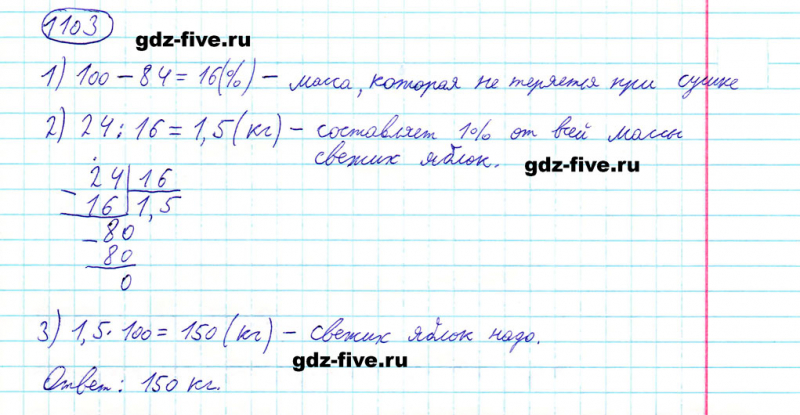 1103
gdz-five.ru
1) 100 – 84 = 16(%) – масса, которая не теряется при сушке
2) 24 : 16 = 1,5 (кг) – составляет 1% от всей массы
свежих яблок.
gdz-five.ru
24 | 16
– 16 | 1,5
– 80
80
0
3) 1,5 · 100 = 150 (кг) – свежих яблок надо.
gdz-five.ru
Ответ: 150 кг.